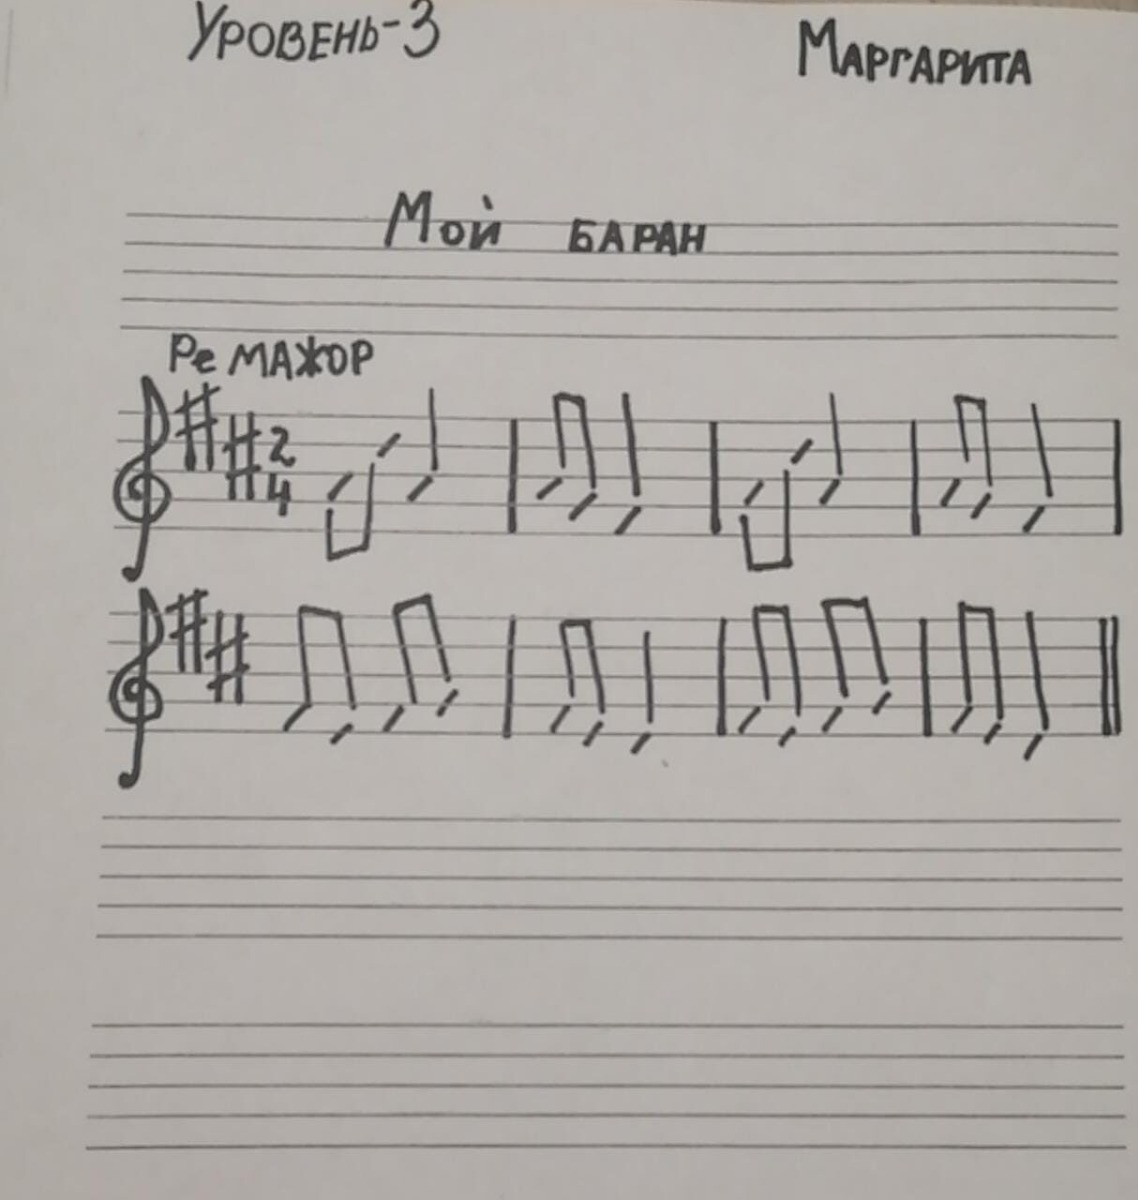 Уровень-3
Маргарита
Мой баран
Ре мажор
2
4